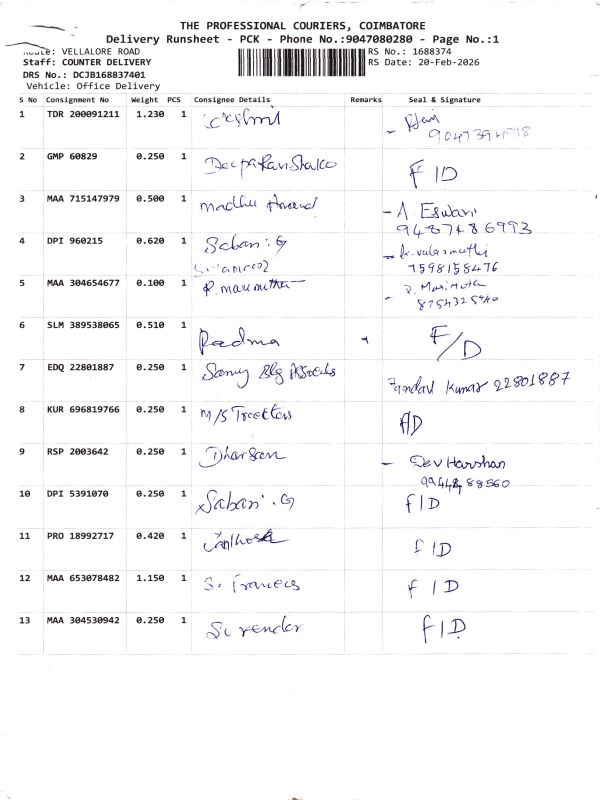 THE PROFESSIONAL COURIERS, COIMBATORE
Delivery Runsheet - PCK - Phone No.:9047080280 - Page No.:1
Route: VELLALORE ROAD RS No.: 1688374
Staff: COUNTER DELIVERY RS Date: 20-Feb-2026
DRS No.: DCJB168837401
Vehicle: Office Delivery
S No Consignment No Weight PCS Consignee Details Remarks Seal & Signature
1 TDR 200091211 1.230 1
2 GMP 60829 0.250 1 F/D
3 MAA 715147979 0.500 1 Madhu Anand - A Eswari
9487486993
4 DPI 960215 0.620 1 Sabari . G
7598158476
5 MAA 304654677 0.100 1 P. marimuthu P. Marimuthu
6 SLM 389538065 0.510 1 Padma F/D
7 EDQ 22801887 0.250 1 Kumar 22801887
8 KUR 696819766 0.250 1 M/S
9 RSP 2003642 0.250 1 Dharsan - Dev Harshan
10 DPI 5391070 0.250 1 Sabari . G F/D
11 PRO 18992717 0.420 1 F/D
12 MAA 653078482 1.150 1 S. Francis F/D
13 MAA 304530942 0.250 1 Surender F/D